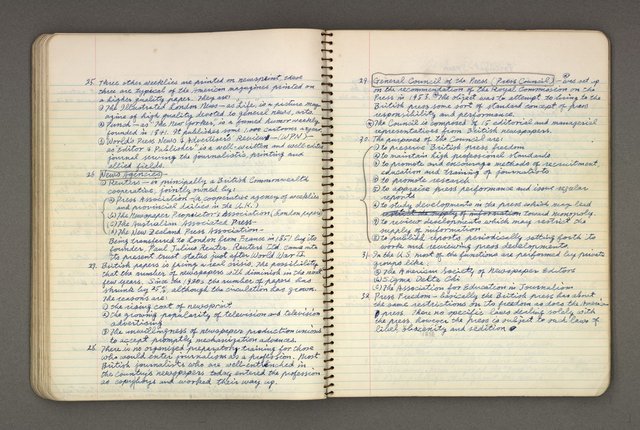 25. Three other weeklies are printed on newsprint, these
three are typical of the American magazines printed on
a higher quality paper. They are:
① The Illustrated London News — as Life, is a picture mag-
azine of high quality devoted to general news, arts
② Punch — as The New Yorker, is a famed humor weekly
founded in 1841. It publishes some 1,000 cartoons a year
③ World's Press News & Advertisers' Review — (WPN) —
as Editor & Publisher is a well-written and well-edited
journal serving the journalistic, printing and
allied fields.
26. News Agencies
① Reuters — is principally a British Commonwealth
cooperative, jointly owned by:
(a) Press Association — (a cooperative agency of weeklies
and provincial dailies in the U.K.)
(b) The Newspaper Proprietor's Association (London papers)
(c) The Australian Associated Press
(d) The New Zealand Press Association —
Being transferred to London from France in 1851 by its
founder Paul Julius Reuter. Reuters Ltd. came into
its present trust status just after World War II.
27. British papers is facing a real crisis, the possibility
that the number of newspapers will diminish in the next
few years. Since the 1920s the number of papers has
shrunk by 25%, although the circulation has grown.
The reasons are:
① the rising cost of newsprint
② the growing popularity of television and television
advertising
③ the unwillingness of newspaper production unions
to accept promptly mechanization advances.
28. There is no organized preparatory training for those
who would enter journalism as a profession. Most
British journalists who are well-entrenched in
the country's newspapers today entered the profession
as copyboys and worked their way up.
29. General Council of the Press (Press Council) — ① was set up
on the recommendation of the Royal Commission on the
Press in 1953. ② The object was to attempt to bring to the
British press some sort of standard concept of press
responsibility and performance.
③ The Council is composed of 15 editorial and managerial
representatives from British newspapers.
30. The purposes of the Council are:
① to preserve British press freedom
② to maintain high professional standards
③ to promote and encourage methods of recruitment,
education and training of journalists
④ to promote research
⑤ to appraise press performance and issue regular
reports
⑥ to study developments in the press which may lead
toward monopoly.
⑦ to review developments which may restrict the
supply of information
⑧ to publish reports periodically setting forth its
work and reviewing press developments.
31. In the U.S. most of the functions are performed by private
groups like:
① The American Society of Newspaper Editors
② Sigma Delta Chi
③ The Association for Education in Journalism
32. Press Freedom — basically the British press has about
the same restrictions on its freedom as does the American
press. There no specific laws dealing solely with
the press, however the press is subject to such laws of
libel, obscenity and sedition